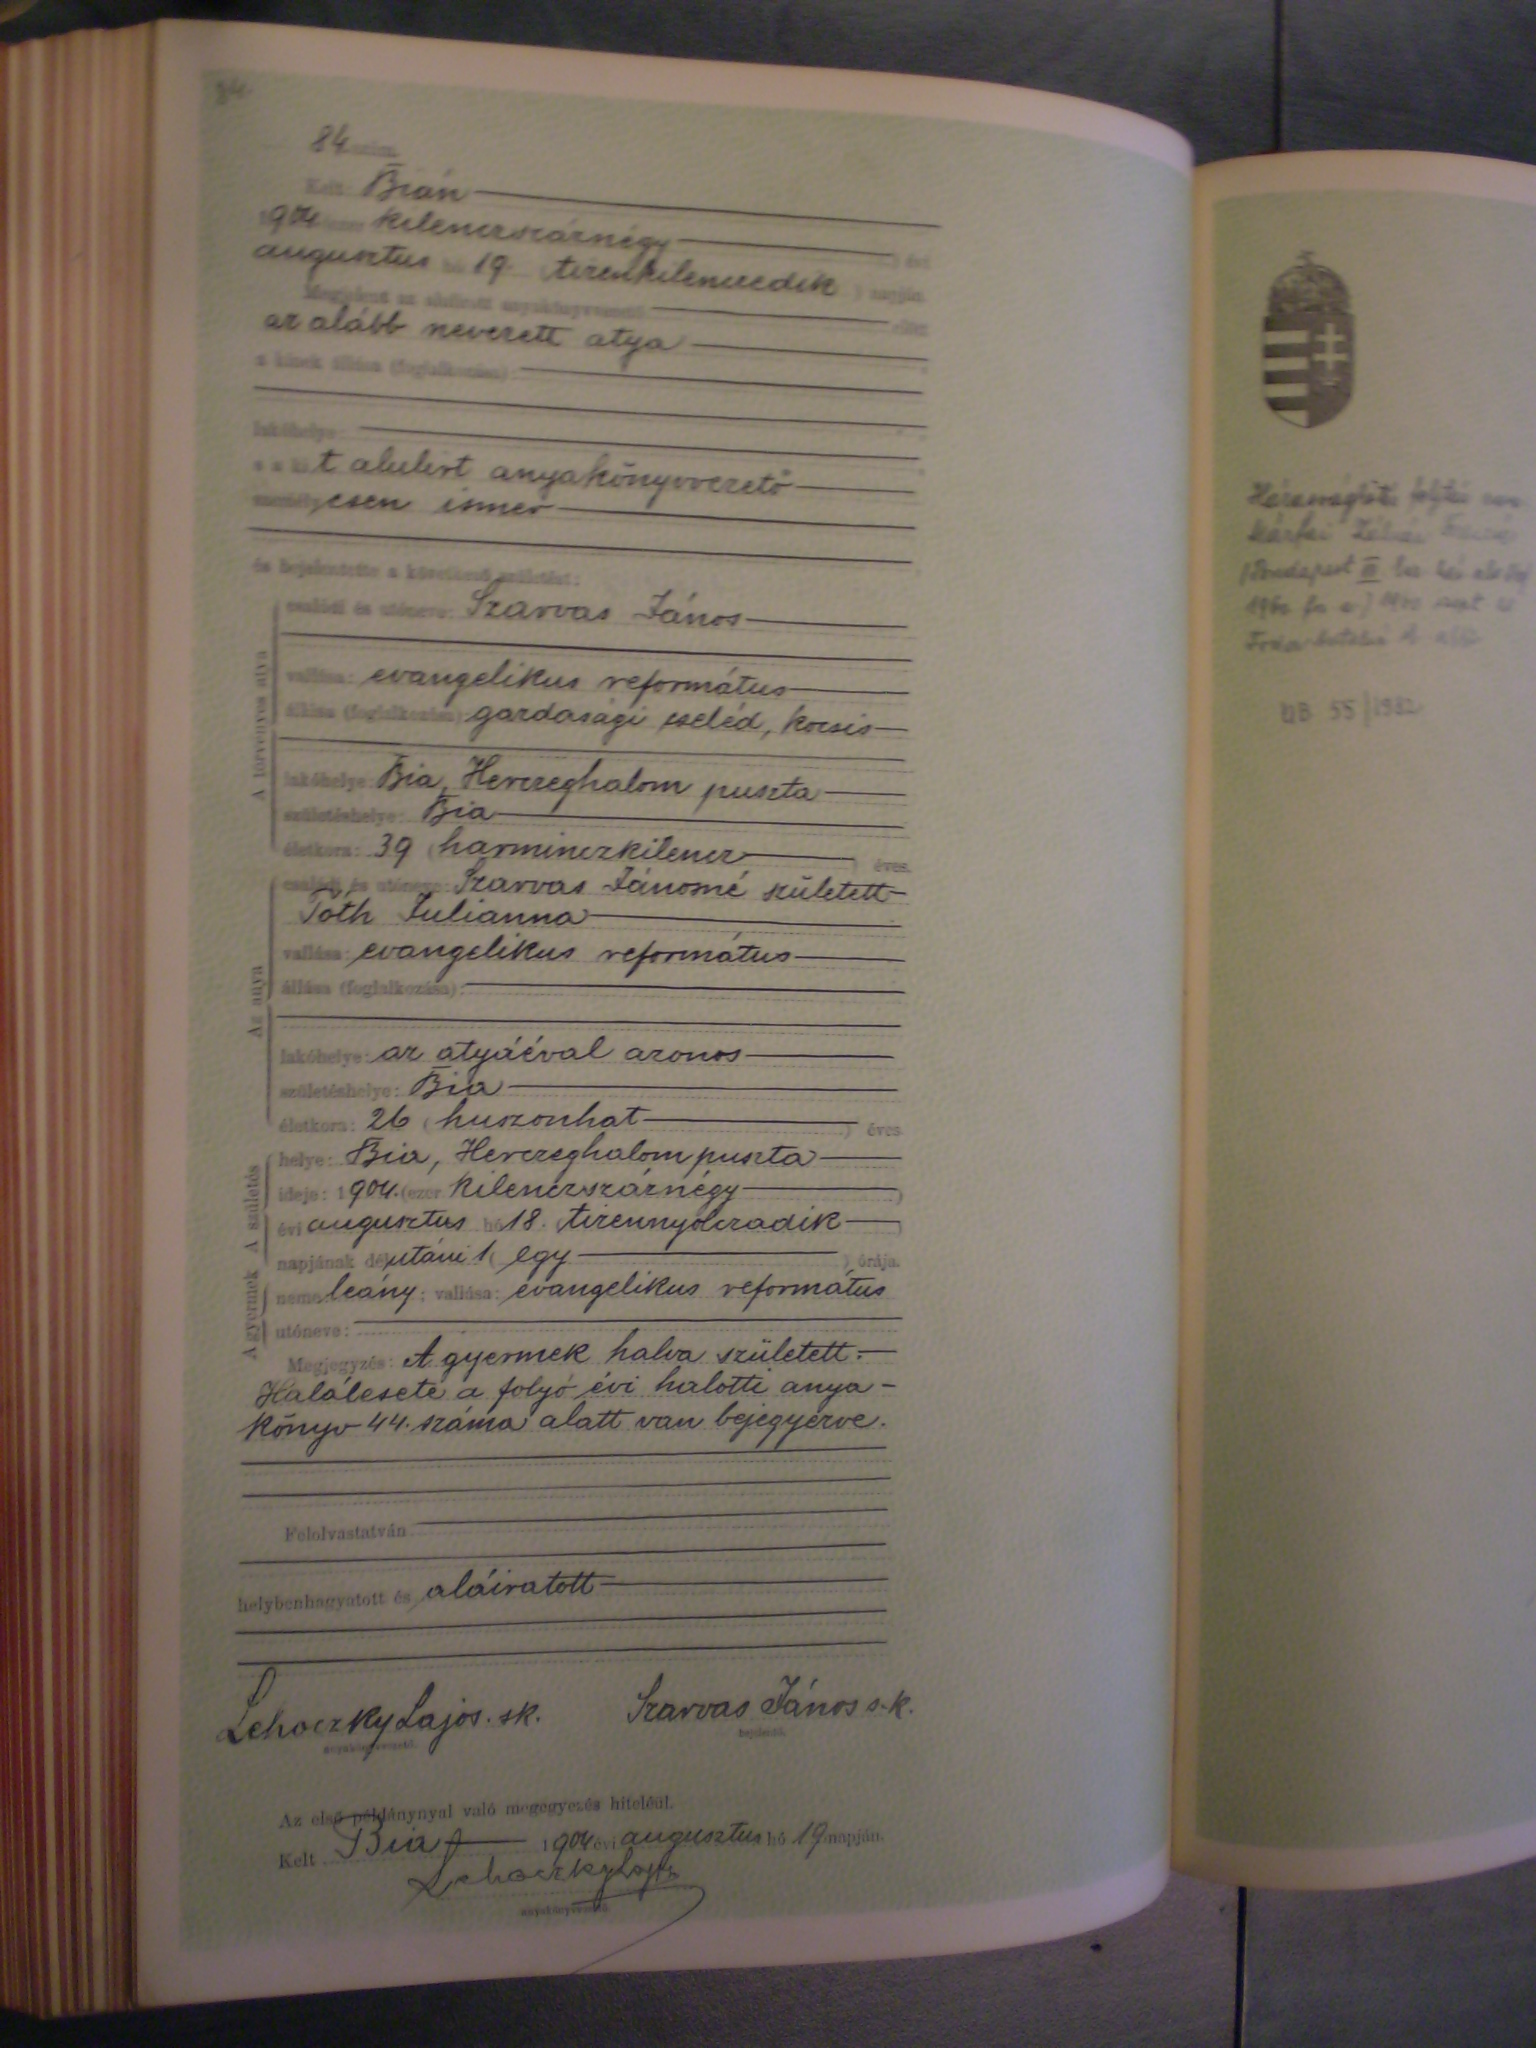 84
84 szám.
Kelt Bián
1904 (ezer kilenczszáznégy ) évi
augusztus hó 19. ( tizenkilenczedik ) napján.
Megjelent az alulirott anyakönyvvezető előtt
az alább nevezett atya
a kinek állása (foglalkozása):
lakóhelye:
s a kit alulirt anyakönyvvezető
személyesen ismer
és bejelentette a következő születést:
A törvényes atya
családi és utóneve: Szarvas János
vallása: evangelikus református
állása (foglalkozása): gazdasági cseléd, kocsis
lakóhelye: Bia, Herczeghalom puszta
születéshelye: Bia
életkora: 39 ( harminczkilencz ) éves.
Az anya
családi és utóneve: Szarvas Jánosné született
Tóth Julianna
vallása: evangelikus református
állása (foglalkozása):
lakóhelye: az atyáéval azonos
születéshelye: Bia
életkora: 26 ( huszonhat ) éves
A születés
helye: Bia, Herczeghalom puszta
ideje: 1904. (ezer kilenczszáznégy )
évi augusztus hó 18. ( tizennyolczadik )
napjának délutáni 1 ( egy ) órája.
A gyermek
neme: leány; vallása: evangelikus református
utóneve:
Megjegyzés: A gyermek halva született.
Halálesete a folyó évi halotti anya-
könyv 44. száma alatt van bejegyezve.
Felolvastatván
helybenhagyatott és aláiratott
Lehoczky Lajos. sk. Szarvas János s.k.
anyakönyvvezető. bejelentő.
Az első példánynyal való megegyezés hiteléül.
Kelt Bia 1904 évi augusztus hó 19 napján.
Lehoczky Lajos
anyakönyvvezető.
55/1982